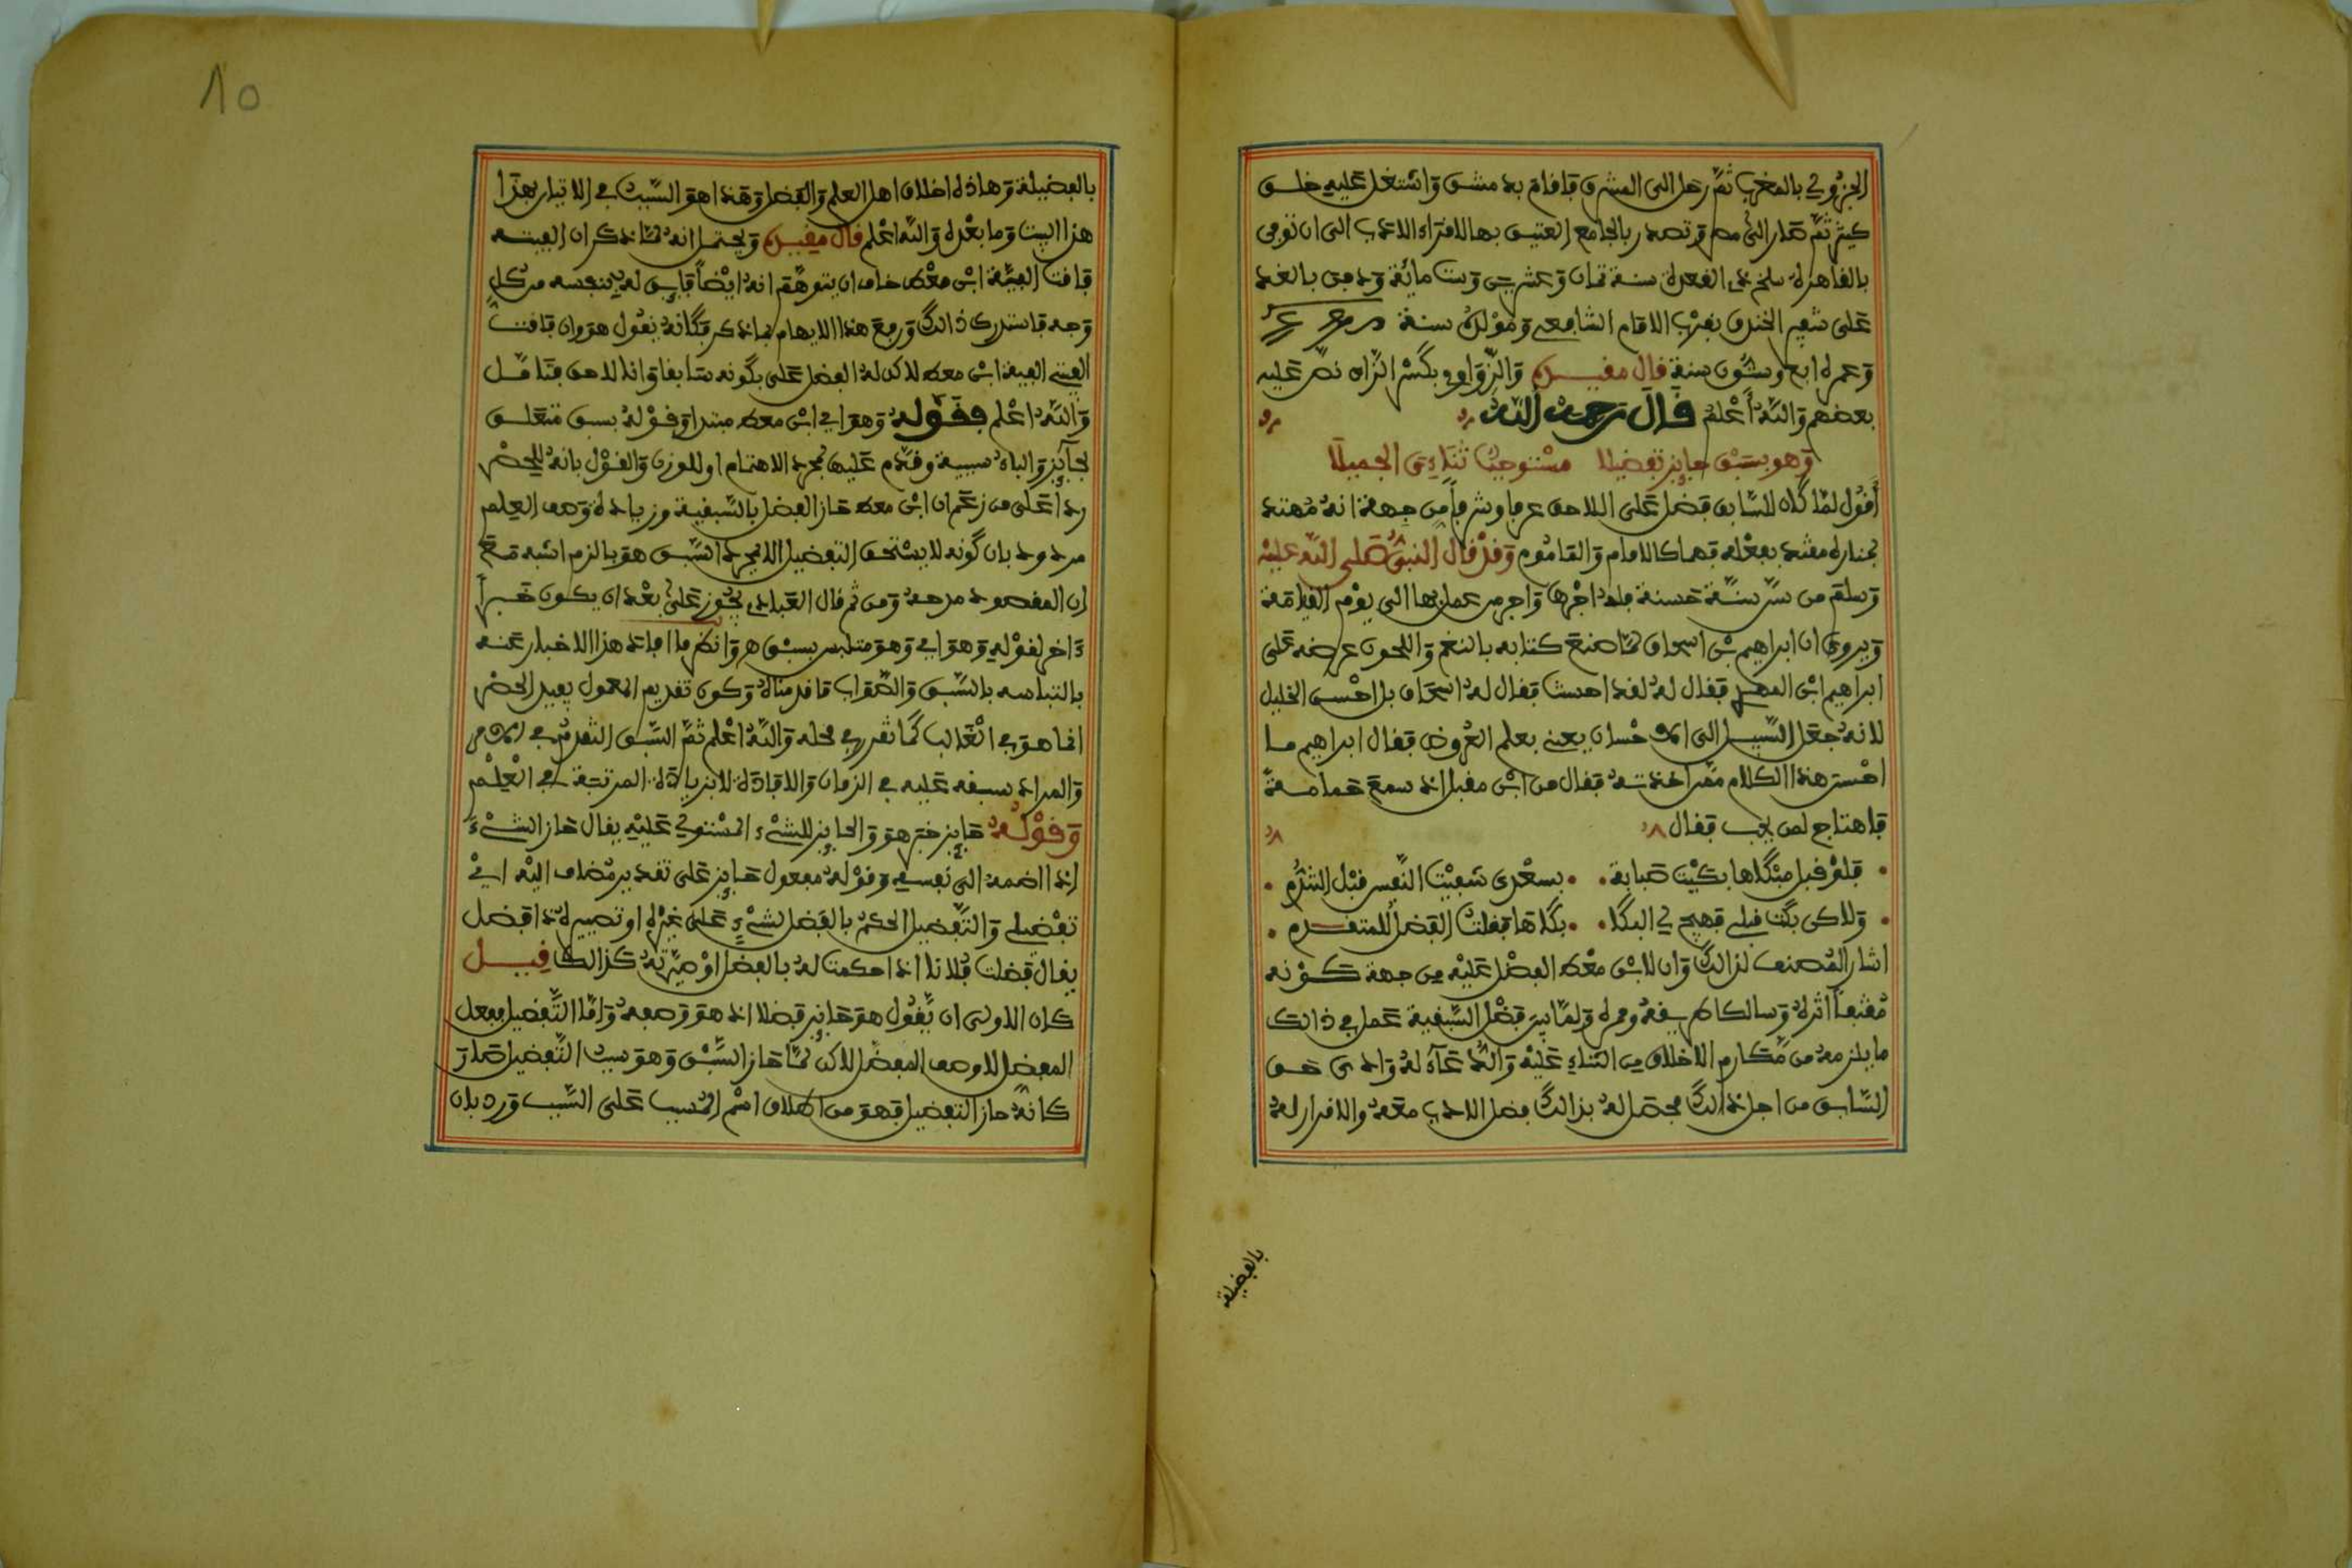 الجزولي بالمغرب ثم رحل الى المشرق فاقام بدمشق واشتغل عليه خلق
كثير ثم صار الى مصر وتصدر بالجامع العتيق بها لاقراء الادب الى ان توفي
بالقاهرة سلخ ذي القعدة سنة ثمان وعشرين وست مائة ودفن بالغد
على شفير الخندق بقرب الامام الشافعي ومولده سنة
وعمره اربع وستون سنة قال مقيده والزواوي بكسر الزاي نص عليه
بعضهم والله أعلم قال رحمه الله
وهو بسبق حايز تفضيلا مستوجب ثناءي الجميلا
أقول لما كان للسابق فضل على اللاحق عرفا وشرعا من جهة انه مقتد
بمناره مقتد بفعله فهما كالامام والماموم وقد قال النبي صلى الله عليه
وسلم من سن سنة حسنة فله اجرها واجر من عمل بها الى يوم القيامة
ويروى ان ابراهيم بن اسحاق لما صنع كتابه بالنغم واللحون عرضه على
ابراهيم ابن المهدي فقال له لقد احسنت فقال له اسحاق بل احسن الخليل
لانه جعل السبيل الى الاحسان يعني بعلم العروض فقال ابراهيم ما
احسن هذا الكلام ممن اخذته فقال من ابن مقبل اذ سمع حمامة
فاهتاج لمن يحب فقال
فلو قبل مبكاها بكيت صبابة بسعدى شفيت النفس قبل التندم
ولاكن بكت قبلي فهيج لي البكا بكاها فقلت الفضل للمتقدم
اشار المصنف لذالك وان لابن معط الفضل عليه من جهة كونه
مقتفيا اثره وسالكا طريقه ولما بين فضل السبقية عمل في ذالك
ما يلزمه من مكارم الاخلاق من الثناء عليه والدعاء له واداى حق
السابق من اجل ذالك فحصل له بذالك فضل الادب معه والاقرار له
بالفضيلة
٨٥
بالفضيلة وهاذه اخلاق اهل العلم والفضل وهذا هو السبب في الاتيان بهذا
هذا البيت وما بعده والله اعلم قال مقيده ويحتمل انه لما ذكر ان الفيته
فاقت الفية ابن معط خاف ان يتوهم انه ايضا فايق له بنفسه من كل
وجه فاستدرك ذالك ورفع هذا الايهام بما ذكر فكأنه يقول هو وان فاقت
الفيتي الفية ابن معط لاكن له الفضل علي بكونه سابقا وانا لاحق فتامل
والله اعلم فقوله وهو اي ابن معط مبتدا وقوله بسبق متعلق
بحآيز والباء سببية وقدم عليه لمجرد الاهتمام او للوزن والقول بانه للحصر
ردا على من زعم ان ابن معط حاز الفضل بالسبقية وزيادة وصف العلم
مردود بان كونه لا يستحق التفضيل الا بمجرد السبق هو بالذم اشبه مع
ان المقصود مدحه ومن ثم قال العبادي يجوز على بعد ان يكون خبرا
ءاخر لقوله وهو اي وهو متلبس بسبق هو وانظر ما افاد هذا الاخبار عنه
بالتباسه بالسبق والصواب ما قدمناه وكون تقديم المعمول يفيد الحصر
انما هو في الغالب كما تقرر في محله والله اعلم ثم السبق التقدم في الامر
والمراد سبقه عليه في الزمان والافادة لا بزيادة المرتبة في العلم
وقوله حايز خبر هو والحايز للشيء المستولي عليه يقال حاز الشيء
اذا اضمه الى نفسه وقوله مفعول حايز على تقدير مضاف اليه اي
تفضيلي والتفضيل الحكم بالفضل لشيء على غيره او تصييره ذا فضل
يقال فضلت فلانا اذا حكمت له بالفضل او صيرته كذالك قيل
كان الاولى ان يقول هو حايز فضلا اذ هو وصفه واما التفضيل ففعل
المفضل لا وصف المفضل لاكن لما حاز السبق وهو سبب التفضيل صار
كانه حاز التفضيل فهو من اطلاق اسم المسبب على السبب ورد بان